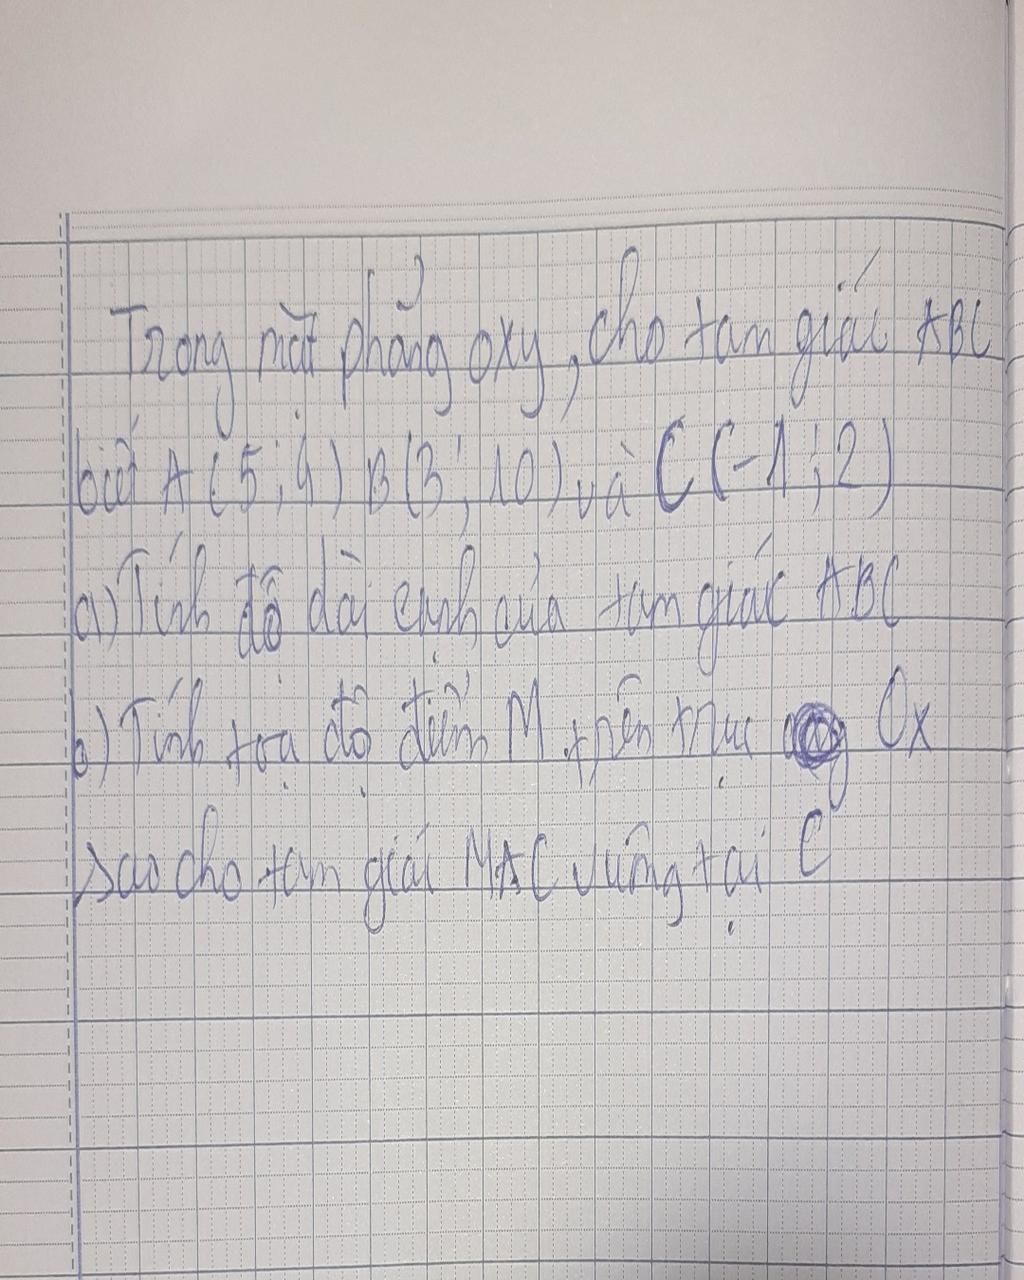 Trong mặt phẳng oxy, cho tam giác ABC
biết A (5 ; 4) B (3 ; 10) và C (-1 ; 2)
a) Tính độ dài cạnh của tam giác ABC
b) Tính tọa độ điểm M trên trục Ox
sao cho tam giác MAC vuông tại C